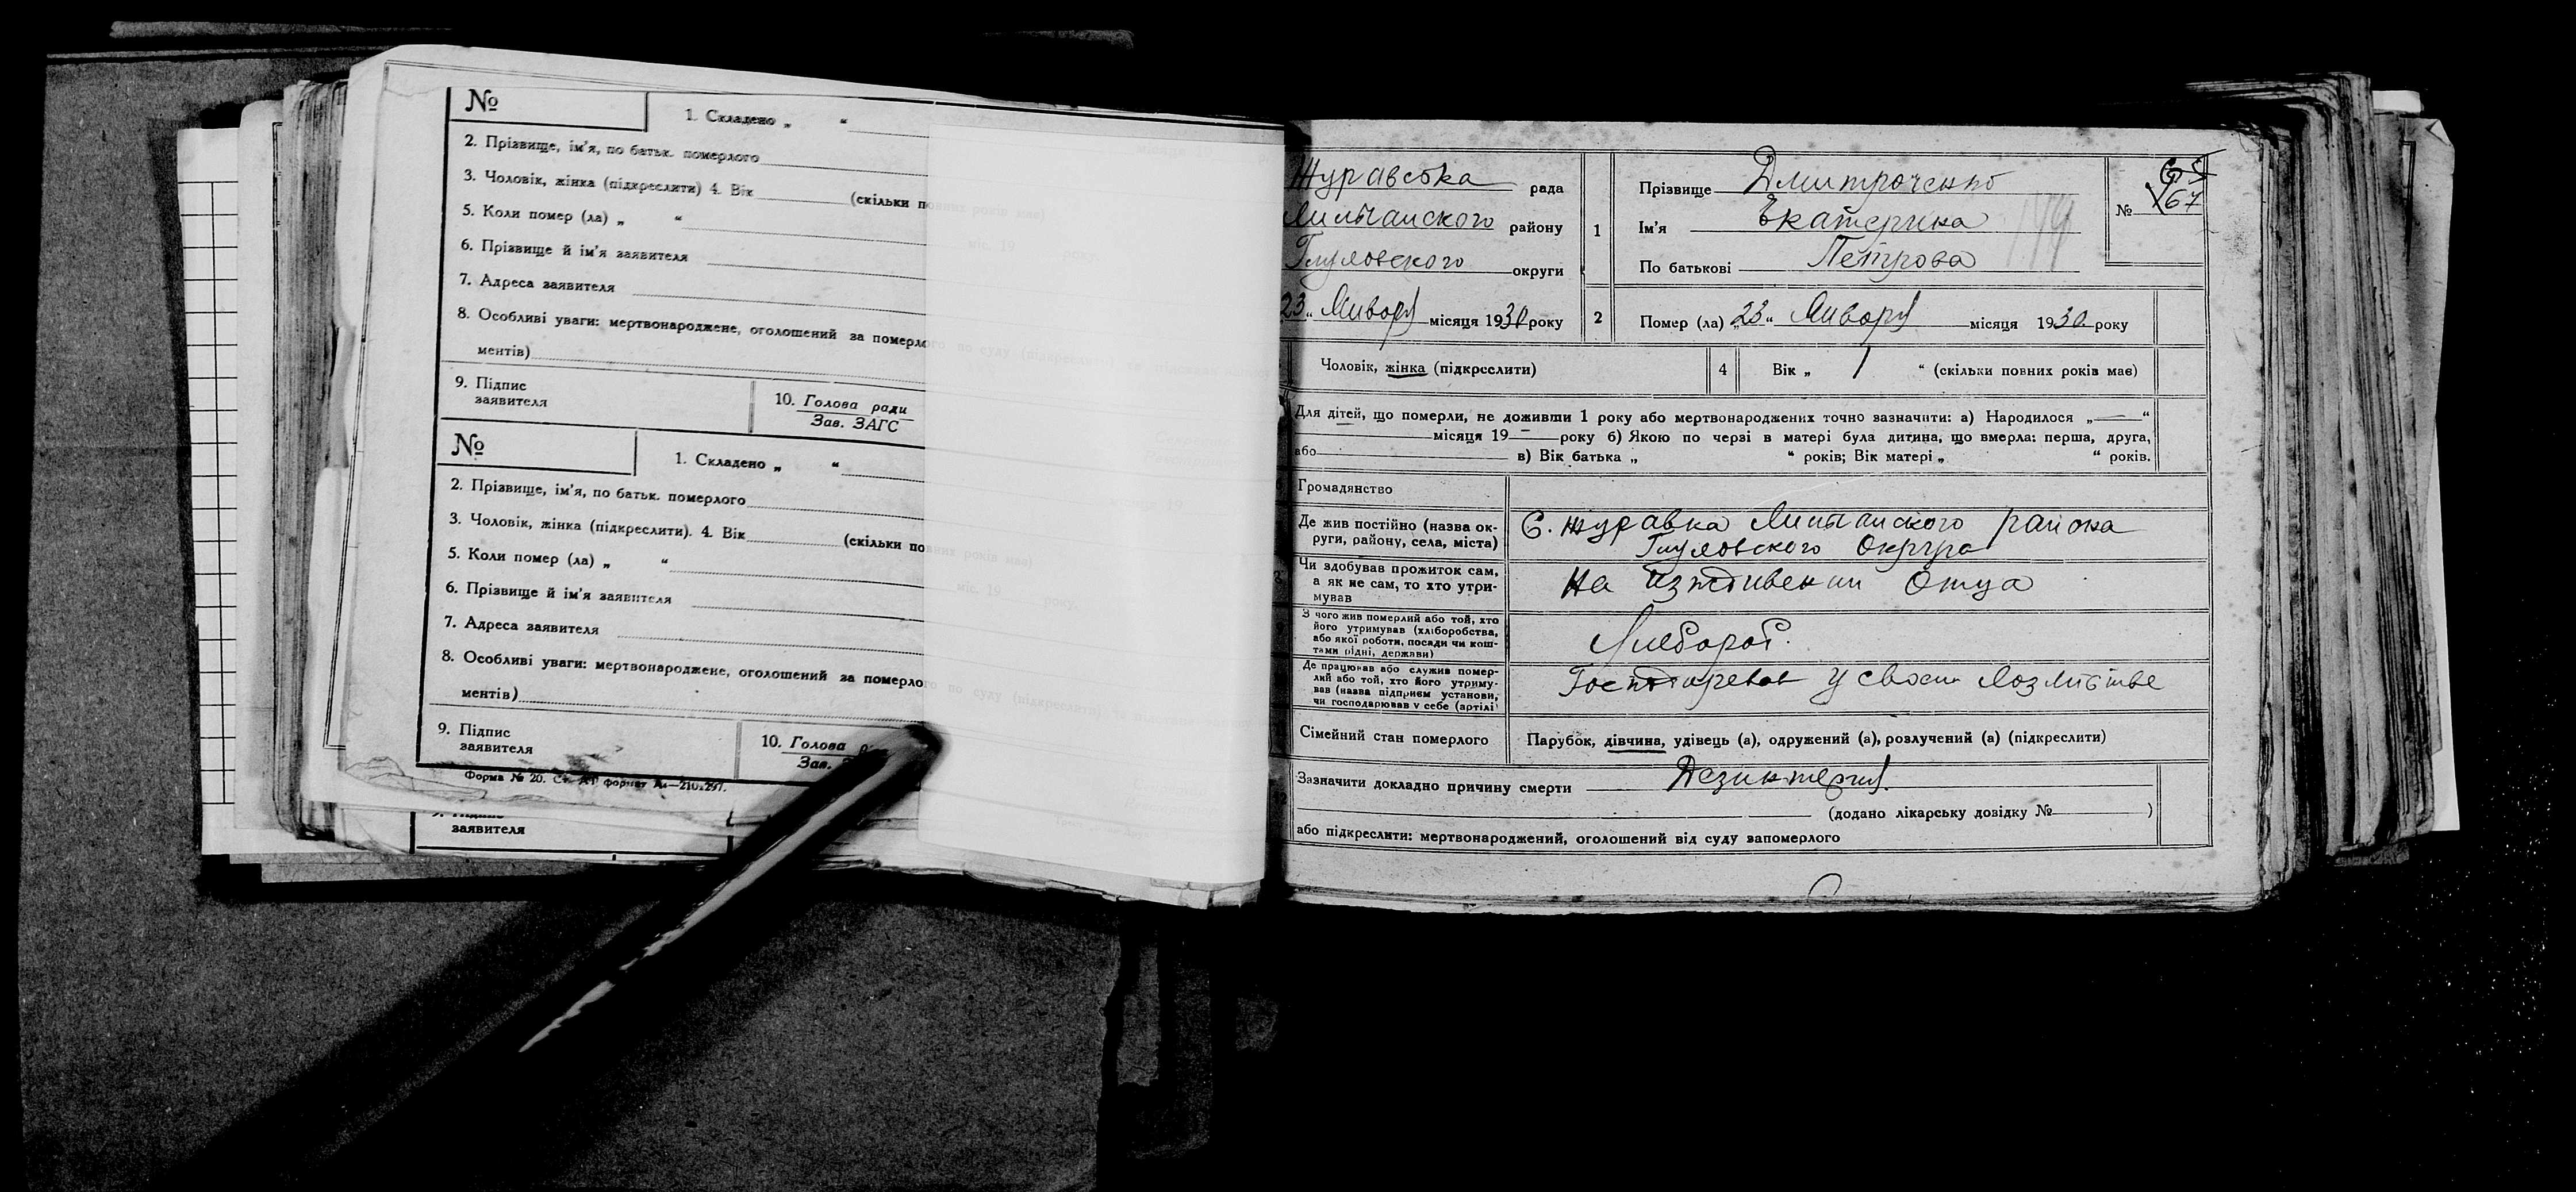 №
1. Складено „ “
2. Прізвище, ім'я, по батьк. померлого
3. Чоловік, жінка (підкреслити) 4. Вік (скільки повних років має)
5. Коли помер (ла) „ “ міс. 19 року
6. Прізвище й ім'я заявителя
7. Адреса заявителя
8. Особливі уваги: мертвонароджене, оголошений за померлого по суду (підкреслити)
ментів)
9. Підпис
заявителя
10. Голова ради
Зав. ЗАГС
№
1. Складено „ “
2. Прізвище, ім'я, по батьк. померлого
3. Чоловік, жінка (підкреслити). 4. Вік (скільки повних років має)
5. Коли помер (ла) „ “ міс. 19 року.
6. Прізвище й ім'я заявителя
7. Адреса заявителя
8. Особливі уваги: мертвонароджене, оголошений за померлого по суду (підкреслити)
ментів)
9. Підпис
заявителя
10. Голова
Зав.
Форма № 20. Ст. формат
9. Підпис
заявителя
Журавська рада
району
округи
23 „ Январ місяця 1930 року
1
Прізвище Дмитроченко
Ім'я Екатерина
По батькові Петрова
№ 65
67
2
Помер (ла) „23“ Январ місяця 1930 року
Чоловік, жінка (підкреслити)
4
Вік „ 1 “ (скільки повних років має)
Для дітей, що померли, не доживши 1 року або мертвонароджених точно зазначити: а) Народилося „—“
місяця 19— року б) Якою по черзі в матері була дитина, що вмерла: перша, друга,
або в) Вік батька „ “ років; Вік матері „ “ років.
Громадянство
Де жив постійно (назва ок-
руги, району, села, міста)
С. Журавка района
Округа
Чи здобував прожиток сам,
а як не сам, то хто утри-
мував
На иждивении Отца
З чого жив померлий або той, хто
його утримував (хліборобства,
або якої роботи, посади чи кош-
тами рідні, держави)
Хлебороб.
Де працював або служив помер-
лий або той, хто його утриму-
вав (назва підприєм установи,
чи господарював у себе (артілі)
у своєм
Сімейний стан померлого
Парубок, дівчина, удівець (а), одружений (а), розлучений (а) (підкреслити)
Зазначити докладно причину смерти
(додано лікарську довідку № )
або підкреслити: мертвонароджений, оголошений від суду запомерлого